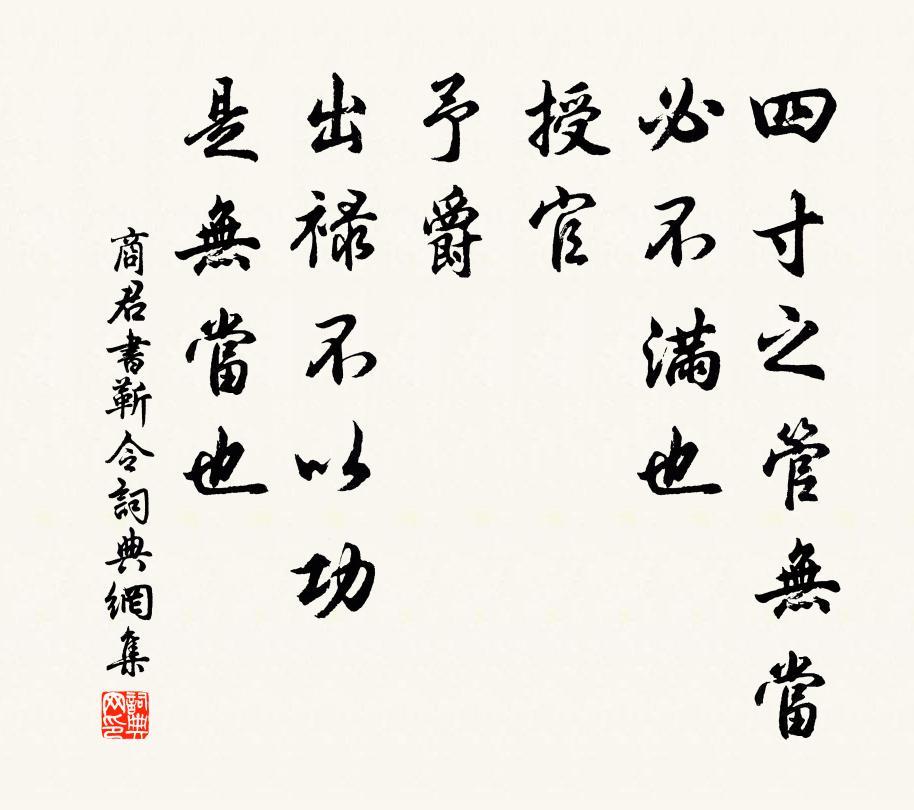 四寸之管無當
必不滿也
授官
予爵
出祿不以功
是無當也
商君書靳令詞典網集
詞典網印